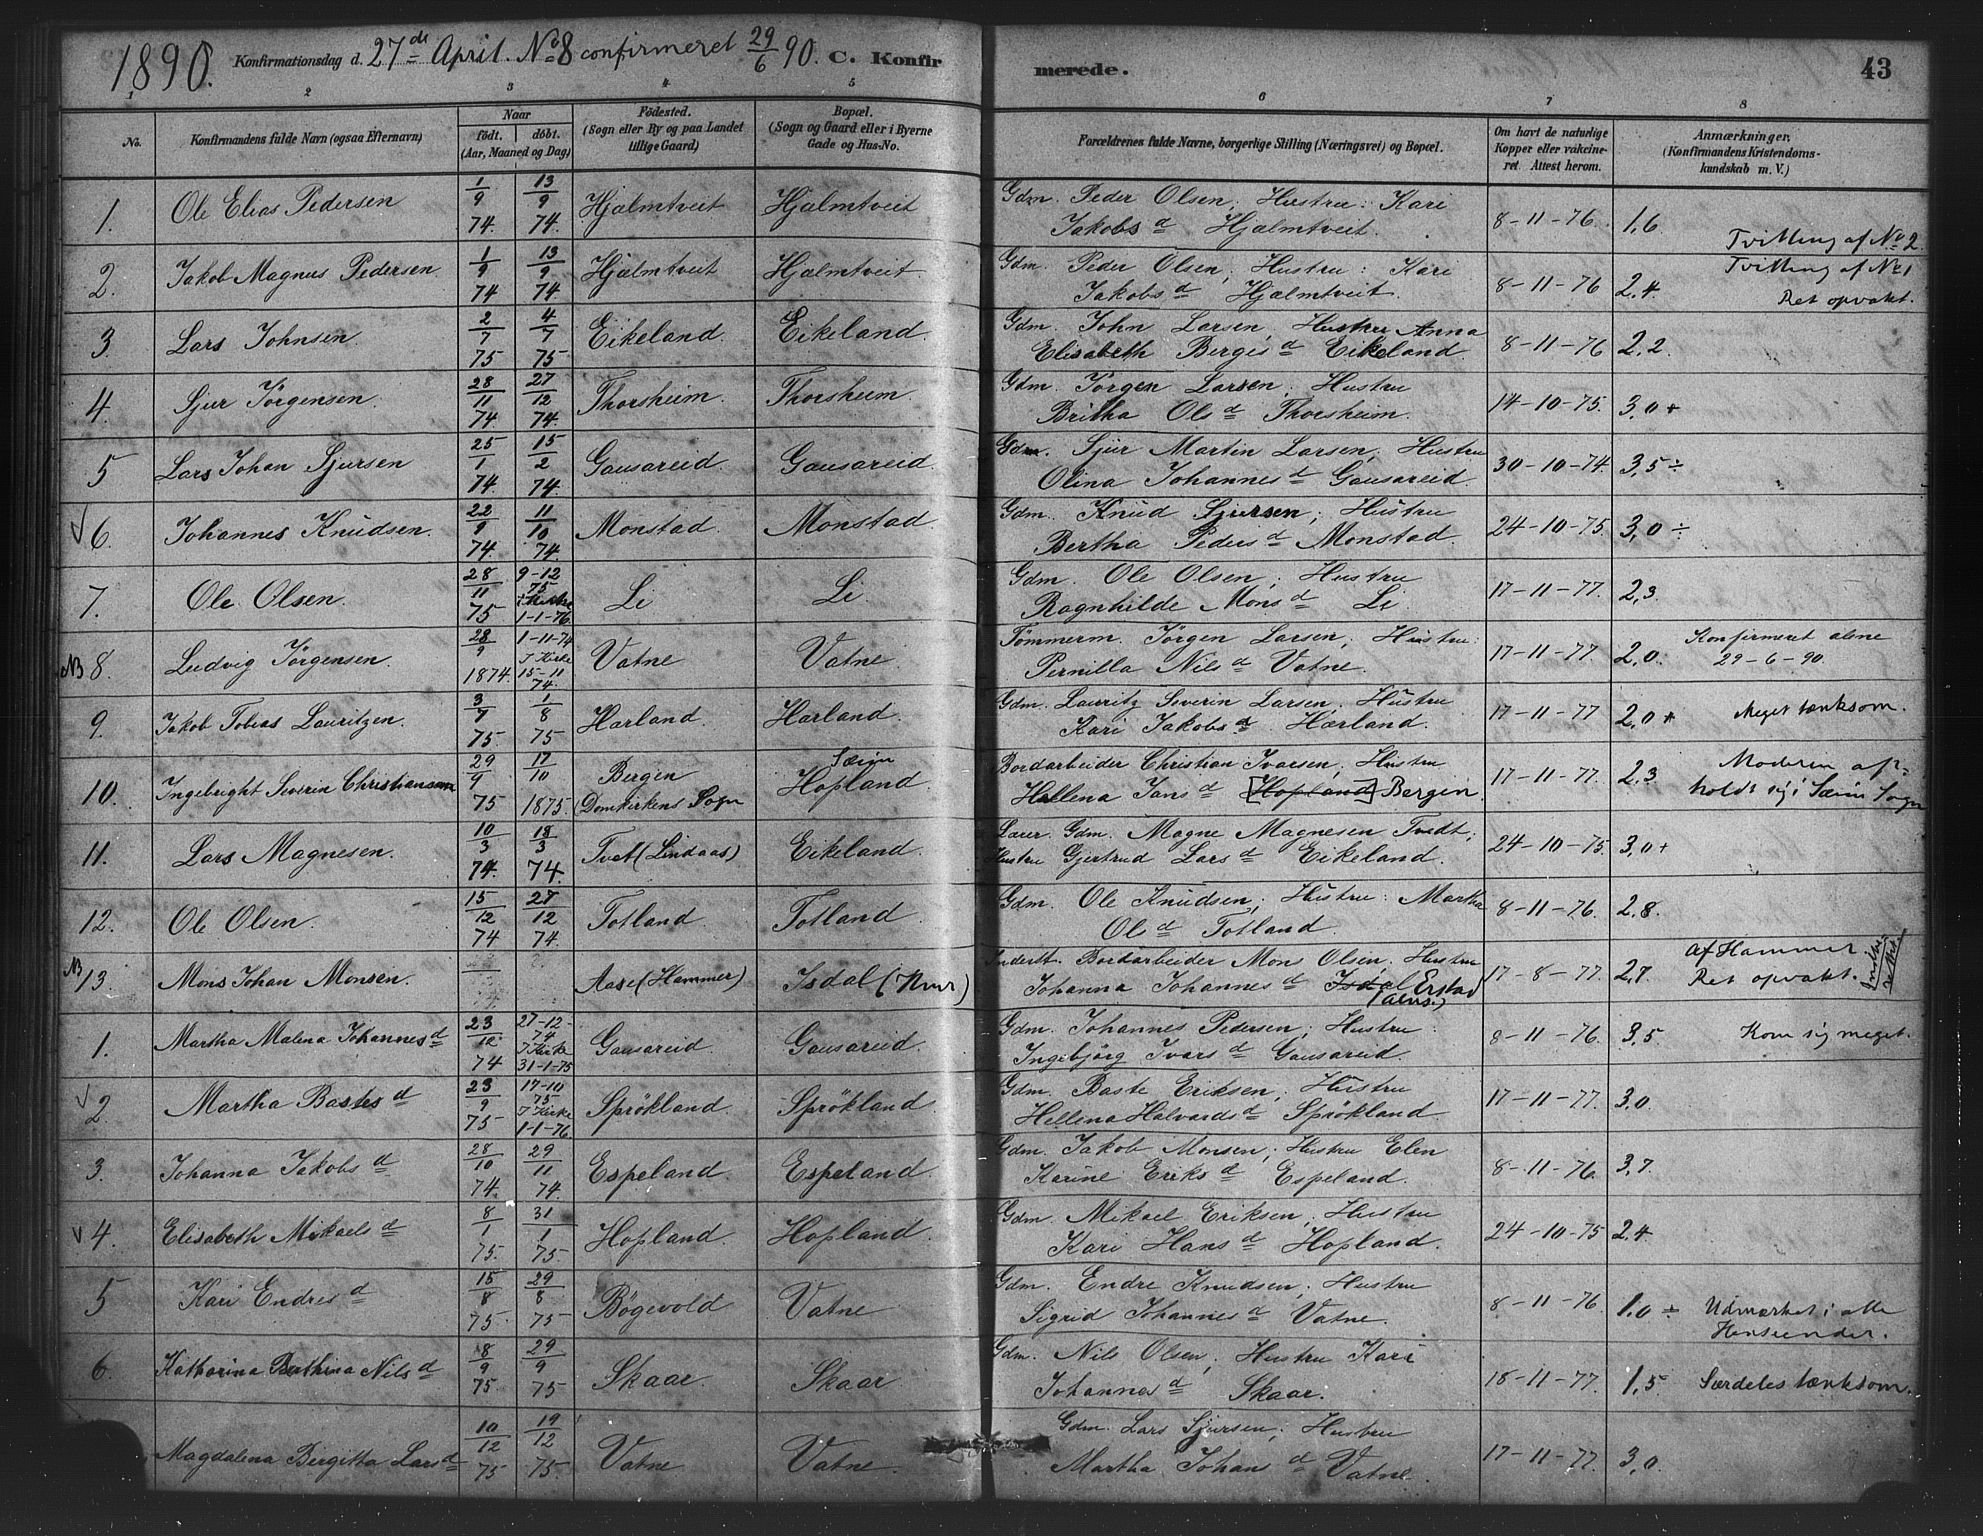 1890. Konfirmationsdag d. 27de April. No 8 confirmeret 29/6 90. C. Konfirmerede. 43
1 2 3 4 5 6 7 8
No. Konfirmandens fulde Navn (ogsaa Efternavn) Naar født. døbt. (Aar, Maaned og Dag) Fødested. (Sogn eller By og paa Landet tillige Gaard) Bopæl. (Sogn og Gaard eller i Byerne Gade og Hus-No. Forældrenes fulde Navne, borgerlige Stilling (Næringsvei) og Bopæl. Om havt de naturlige Kopper eller vakcineret Attest herom. Anmærkninger, (Konfirmandens Kristendomskundskab m. V.)
1. Ole Elias Pedersen 1/9 74. 13/9 74. Hjælmtveit Hjælmtveit Gdm. Peder Olsen; Hustru: Kari Jakobsd Hjælmtveit. 8-11-76. 1,6 Tvilling af No 2.
2. Jakob Magnus Pedersen. 1/9 74 13/9 74. Hjælmtveit Hjælmtveit. Gdm. Peder Olsen; Hustru: Kari Jakobsd Hjælmtveit. 8-11-76 2,4. Tvilling af No 1 Ret opvakt.
3. Lars Johnsen. 2/7 75 4/7 75 Eikeland. Eikeland. Gdm. John Larsen; Hustru Anna Elisabeth Bergesd Eikeland. 8-11-76 2,2.
4. Sjur Jörgensen. 28/11 74 27/12 74. Thorsheim. Thorsheim Gdm. Jörgen Larsen; Hustru Britha Olsd Thorsheim. 14-10-75. 3,0+
5 Lars Johan Sjursen 25/1 74. 15/2 74. Gausareid. Gausareid. Gdm. Sjur Martin Larsen; Hustru Olina Johannesd Gausareid. 30-10-74. 3,5÷
√6. Johannes Knudsen. 22/9 74. 11/10 74. Monstad Monstad Gdm. Knud Sjursen; Hustru Bertha Pedersd Monstad. 24-10-75. 3,0÷
7. Ole Olsen. 28/11 75 9-12 75 1-1-76. Li Li. Gdm. Ole Olsen; Hustru Ragnhilde Monsd Li. 17-11-77. 2,3.
NB 8. Ludvig Jörgensen. 28/9 1874. 1-11-74 I Kirke 15-11 74. Vatne Vatne Tömmerm. Jörgen Larsen; Hustru: Pernilla Nilsd Vatne. 17-11-77. 2,0. Konfirmeret alene 29-6-90.
9. Jakob Tobias Lauritzen. 3/7 75. 1/8 75 Harland. Harland. Gdm. Lauritz Severin Larsen; Hustru Kari Jakobsd Harland. 17-11-77 2,0+ Meget tænksom.
10. Ingebright Severin Christiansen 29/9 75 17/10 1875. Bergen (Domkirkens Sogn Sæim Hopland. Bordarbeider Christian Ivarsen; Hustru Hellena Jansd [Hopland] Bergen. 17-11-77. 2,3 Moderen opholdt sig i Sæim Sogn
11. Lars Magnesen. 10/3 74. 18/3 74. Tvet (Lindaas) Eikeland. Lærer. Gdm. Magne Magnesen Tvedt; Hustru Gjertrud Larsd Eikeland. 24-10-75. 3,0+
12. Ole Olsen. 15/12 74 27/12 74. Totland Totland Gdm. Ole Knudsen; Hustru: Martha Olsd Totland. 8-11-76. 2,8.
NB 13. Mons Johan Monsen. Aase (Hammer) Isdal Inderst. Bordarbeider Mons Olsen. Hustru Johanna Johannesd Isdal Erstad 17-8-77. 2,7. Af Hammer Ret opvakt.
1. Martha Malena Johannesd 23/12 74 27-12-74 I Kirke 31-1-75 Gausareid. Gausareid. Gdm. Johannes Pedersen; Hustru: Ingebjörg Ivarsd Gausareid. 8-11-76. 3,5 Kom sig meget.
√2. Martha Bastesd 23/9 75 17-10 75 I Kirke 1-1-76 Sprökland. Sprökland. Gdm. Baste Eriksen; Hustru Hellena Halvardsd Sprökland. 17-11-77. 3,0.
3. Johanna Jakobsd 28/10 74. 29/11 74. Espeland Espeland. Gdm. Jakob Monsen; Hustru Elen Karine Eriksd Espeland. 8-11-76. 3,7.
√4. Elisabeth Mikaelsd 8/1 75. 31/1 75 Hopland. Hopland. Gdm. Mikael Eriksen; Hustru Kari Hansd Hopland. 24-10-75 2,4
5 Kari Endresd 15/8 75. 29/8 75 Bögevold Vatne Gdm. Endre Knudsen; Hustru Sigrid Johannesd Vatne. 8-11-76. 1,0÷ Udmærket i alle Henseender.
6. Katharina Berthina Nilsd 8/9 75. 29/9 75 Skaar. Skaar. Gdm. Nils Olsen; Hustru Kari Johannesd Skaar. 18-11-77. 1,5 Særdeles tænksom.
Magdalena Birgitta Larsd 10/12 75 19/12 75. Vatne Vatne. Gdm. Lars Sjursen; Hustru Martha Johansd Vatne. 17-11-77. 3,0.